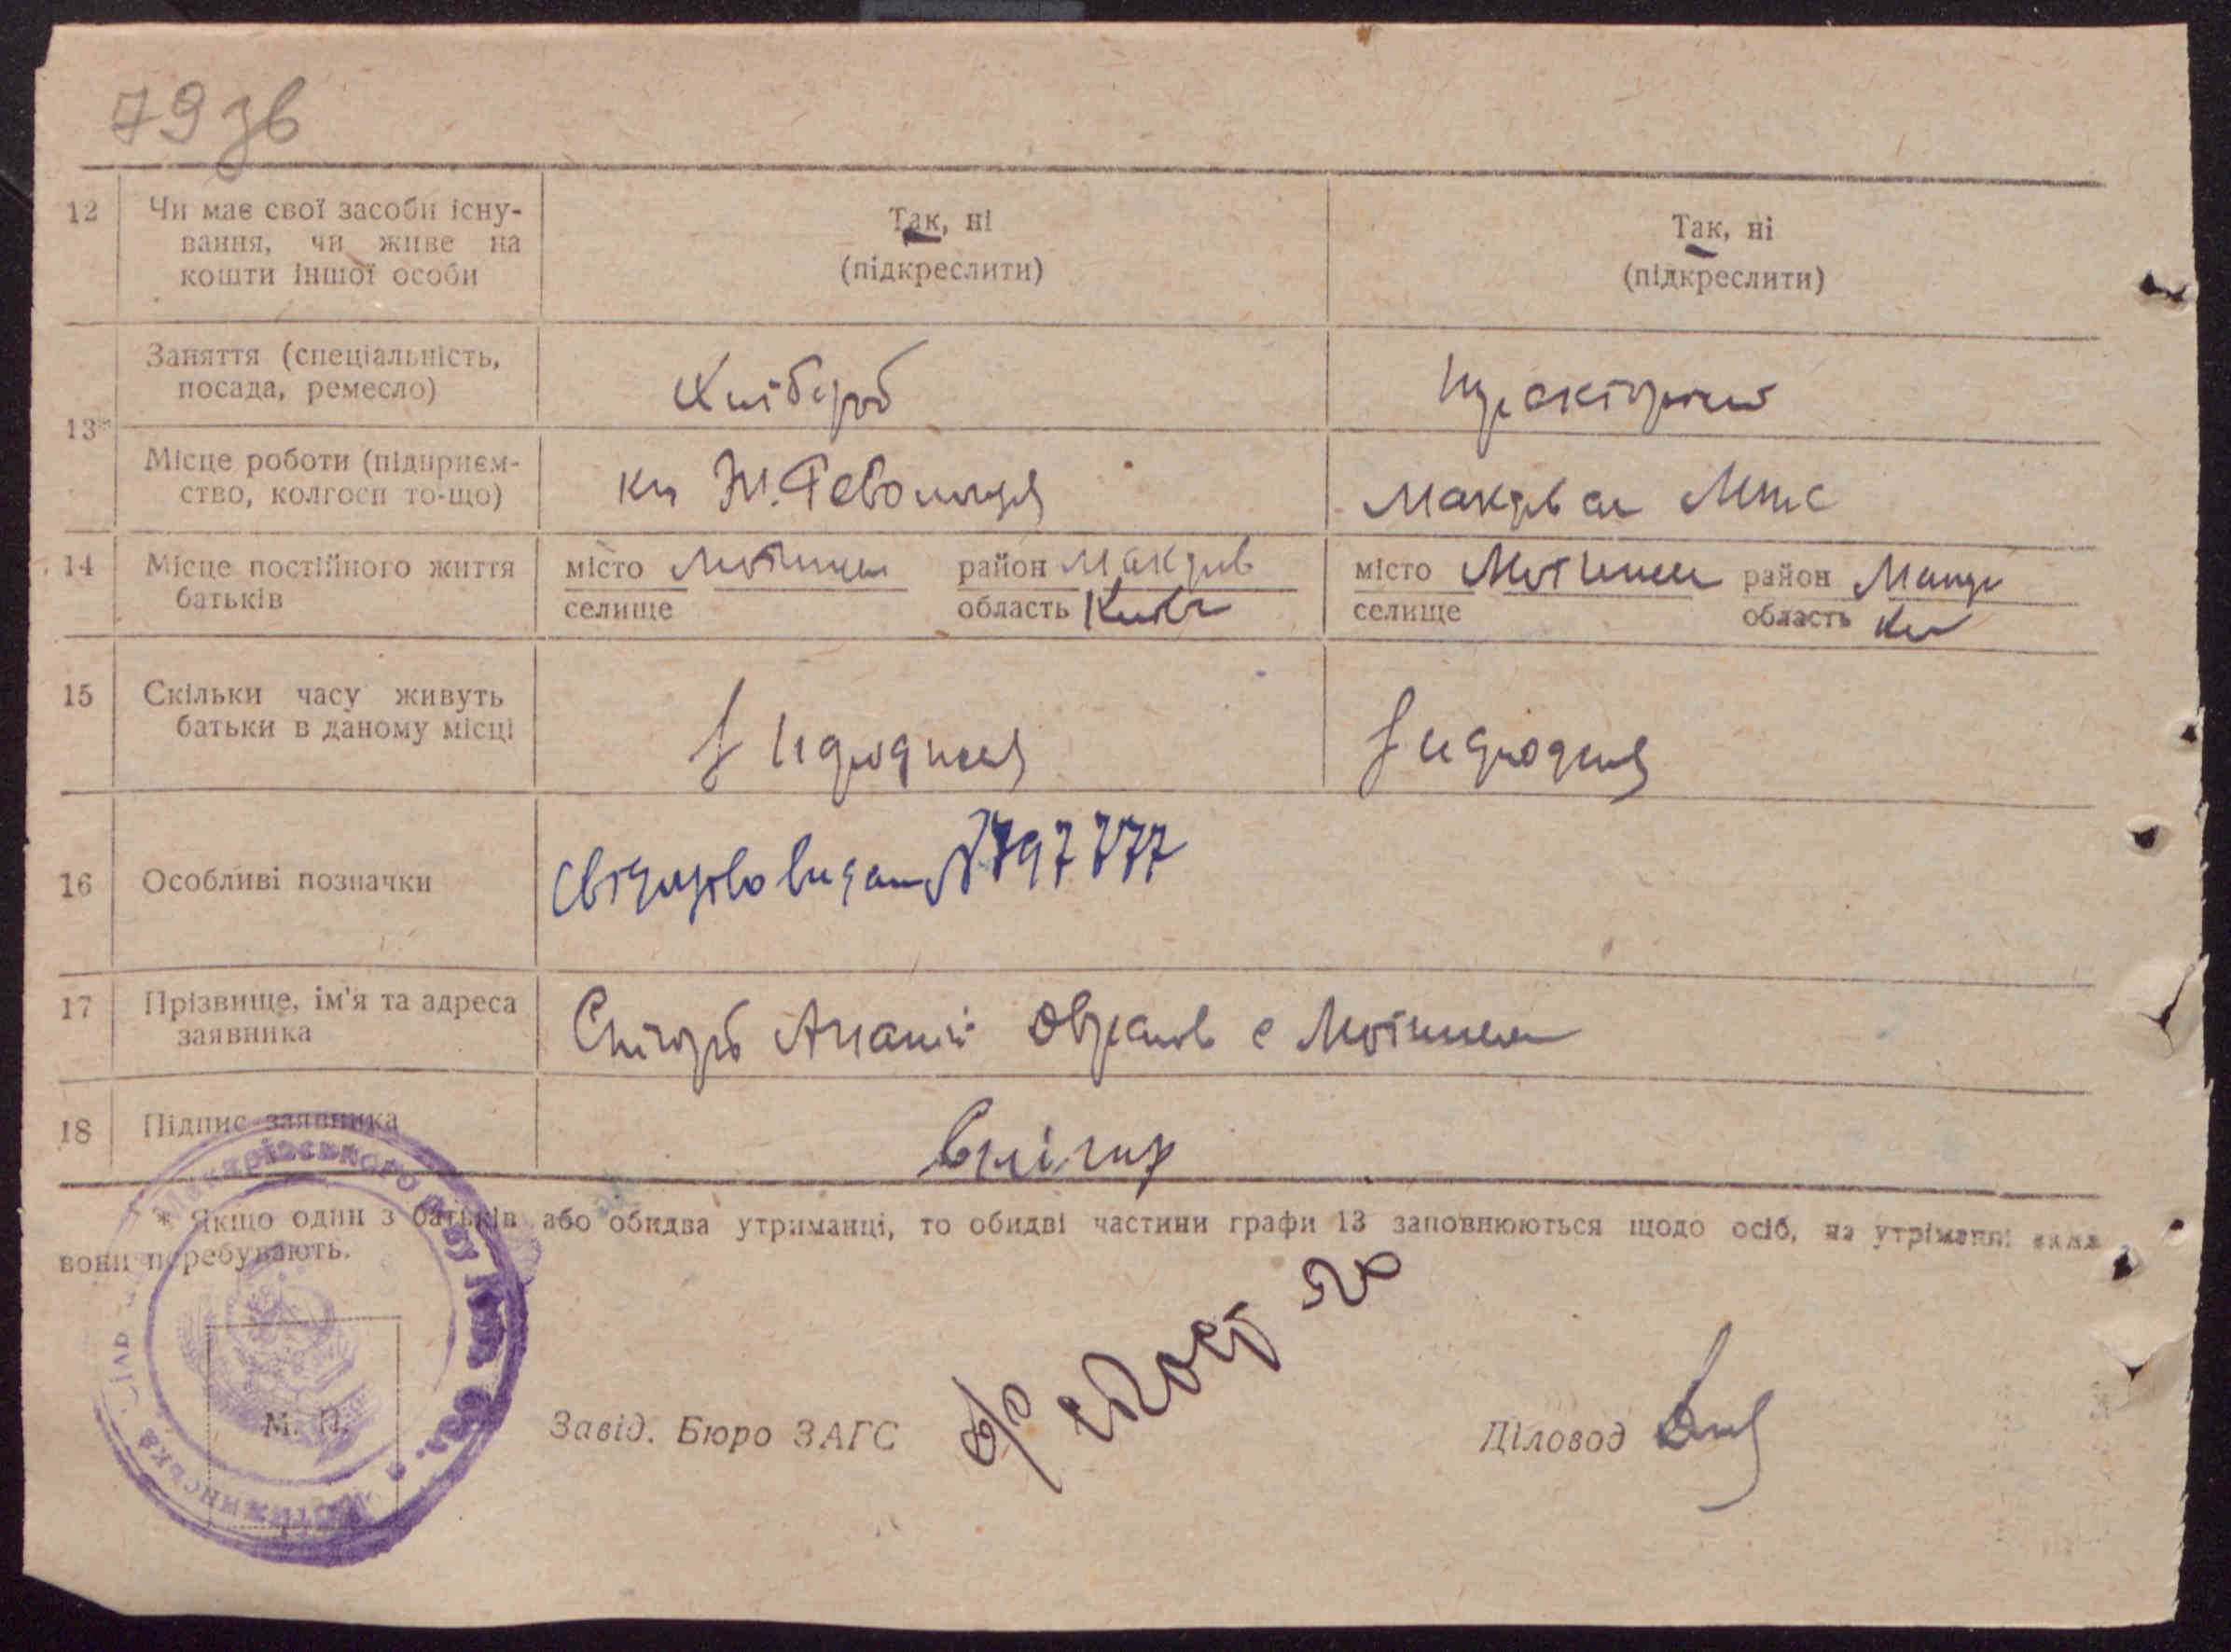 79 зв
12 Чи має свої засоби існу-
вання, чи живе на
кошти іншої особи
Так, ні
(підкреслити)
Так, ні
(підкреслити)
13*
Заняття (спеціальність,
посада, ремесло)
Хлібороб
Місце роботи (підприєм-
ство, колгосп то-що)
Макарівськ МТС
14 Місце постійного життя
батьків
місто Мотижин район Макарів
селище область Київ
місто Мотижин район Макар
селище область Ки
15 Скільки часу живуть
батьки в даному місці
З народження
З народження
16 Особливі позначки
Свідоцтво видано № 797777
17 Прізвище, ім'я та адреса
заявника
Снігир Ананій с Мотижин
18 Підпис заявника
Снігир
* Якщо один з батьків або обидва утриманці, то обидві частини графи 13 заповнюються щодо осіб, на утріманні яких
вони перебувають.
Макарівського р-ну
Мотижинська
М. П.
Завід. Бюро ЗАГС
Діловод